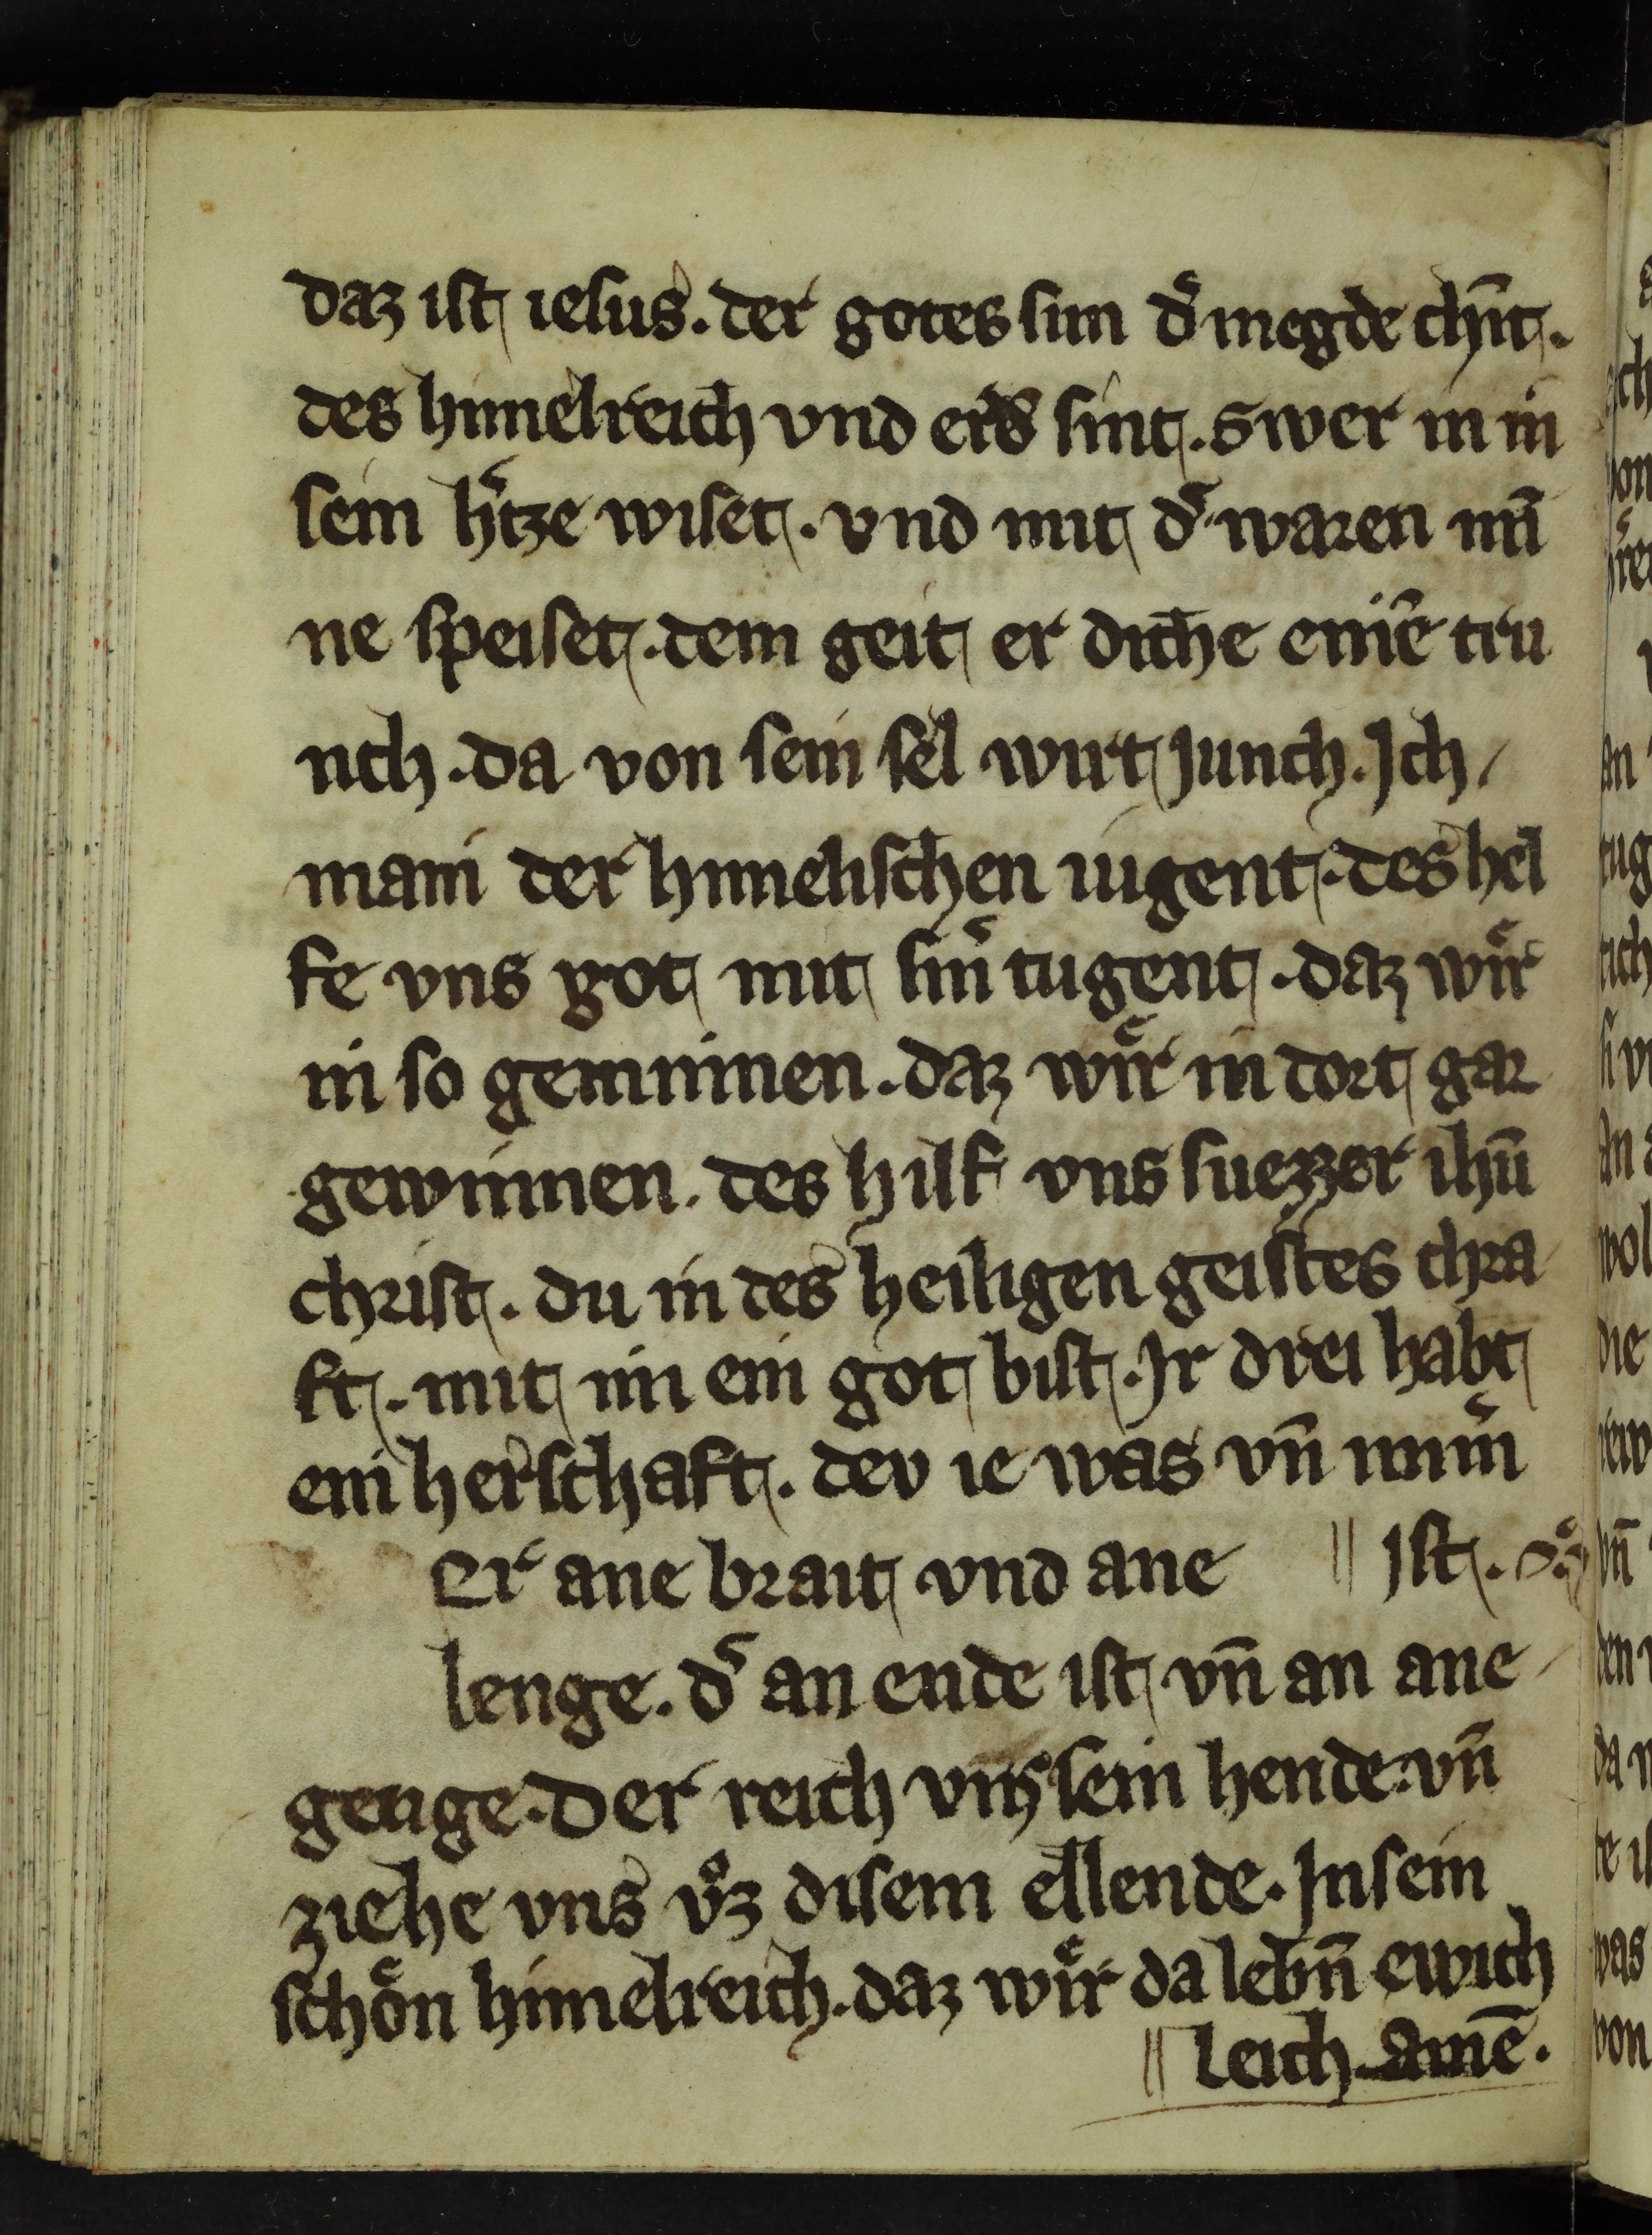 daz ist iesus. der gotes sun d͛ megde chīt.
des himelreich vnd erd͛ sint. Swer in in
sein h͛tze wiset. vnd mit d͛ waren mī
ne speiset. dem geit er diche einē tru
nch. da von sein sel wirt Junch. Ich
main der himelischen iugent. des hel
fe vns got mit sin͛ tugent. daz wir͛
in so geminnen. daz wir͛ in dort gar
gewinnen. des hilf vns suezzer ihū
christ. du in des heiligen geistes chra
ft. mit im ein got bist. Ir drei habt
ein herschaft. dev ie was vn̄ nim͛
Er ane brait vnd ane || Ist.
lenge. d͛ an ende ist vn̄ an ane
genge. Der reich vns sein hende. vn̄
ziehe vns vͦz disem ellende. In sein
schoͤn himelreich. daz wir͛ da lebn̄ ewich
|| leich. amē.